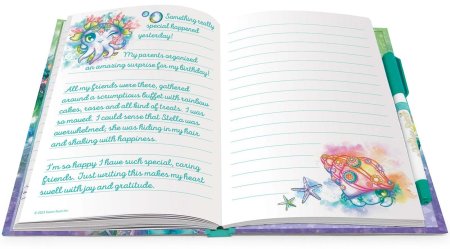 Something really
special happened
yesterday!
My parents organised
an amazing surprise for my birthday!
All my friends were there, gathered
around a scrumptious buffet with rainbow
cakes, roses and all kind of treats. I was
so moved. I could sense that Stella was
overwhelmed; she was hiding in my hair
and shaking with happiness.
I'm so happy I have such special, caring
friends. Just writing this makes my heart
swell with joy and gratitude.